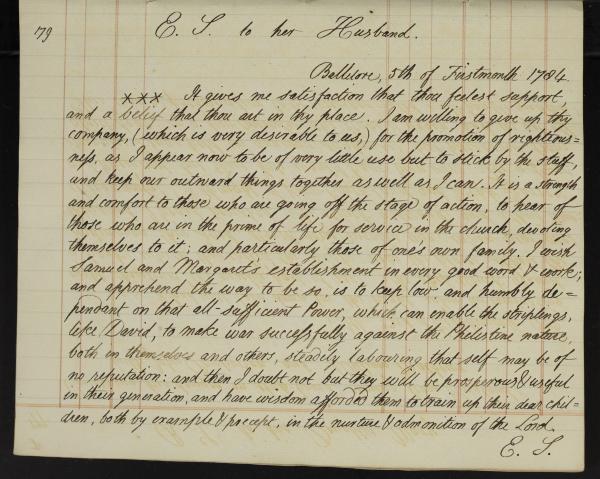 79
E. S. to her Husband.
Ballitore, 5th of Firstmonth 1784.
xxx It gives me satisfaction that thou feelest support,
and a belief that thou art in thy place. I am willing to give up thy
company, (which is very desirable to us,) for the promotion of righteous=
ness, as I appear now to be of very little use but to stick by the stuff,
and keep our outward things together as well as I can. It is a strength
and comfort to those who are going off the stage of action, to hear of
those who are in the prime of life for service in the church, devoting
themselves to it; and particularly those of one's own family. I wish
Samuel and Margaret's establishment in every good word & work;
and apprehend the way to be so, is to keep low, and humbly de=
pendant on that all-sufficient Power, which can enable the striplings,
like David, to make war successfully against the Philistine nature,
both in themselves and others, steadily labouring that self may be of
no reputation: and then I doubt not but they will be prosperous & useful
in their generation, and have wisdom afforded them to train up their dear chil=
dren, both by example & precept, in the nurture & admonition of the Lord.
E. S.